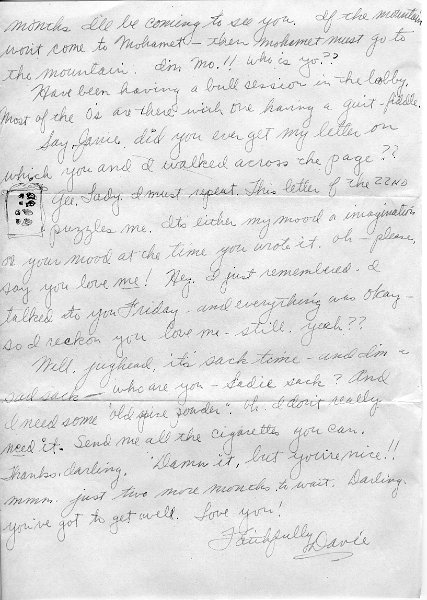 months I'll be coming to see you. If the mountain
won't come to Mohamet - then Mohamet must go to
the mountain. I'm Mo.!! Who is yo.??
Have been having a bull session in the lobby.
Most of the Os are there with one having a guit-fiddle.
Say Janie, did you ever get my letter on
which you and I walked across the page??
Gee, Lady, I must repeat. This letter of the 22ND
puzzles me. Its either my mood & imagination
or your mood at the time you wrote it. oh - please,
say you love me! Hey. I just remembered. I
talked to you Friday - and everything was okay -
so I reckon you love me - still. yeah??
Well, jughead, it's sack time - and I'm a
sad sack - who are you - Sadie sack? And
I need some "old powder". Oh, I don't really
need it. Send me all the cigarettes you can.
Thanks, darling. "Damn it, but you're nice!!
mmm. just two more months to wait. Darling.
you've got to get well. Love you!
Faithfully
Davie